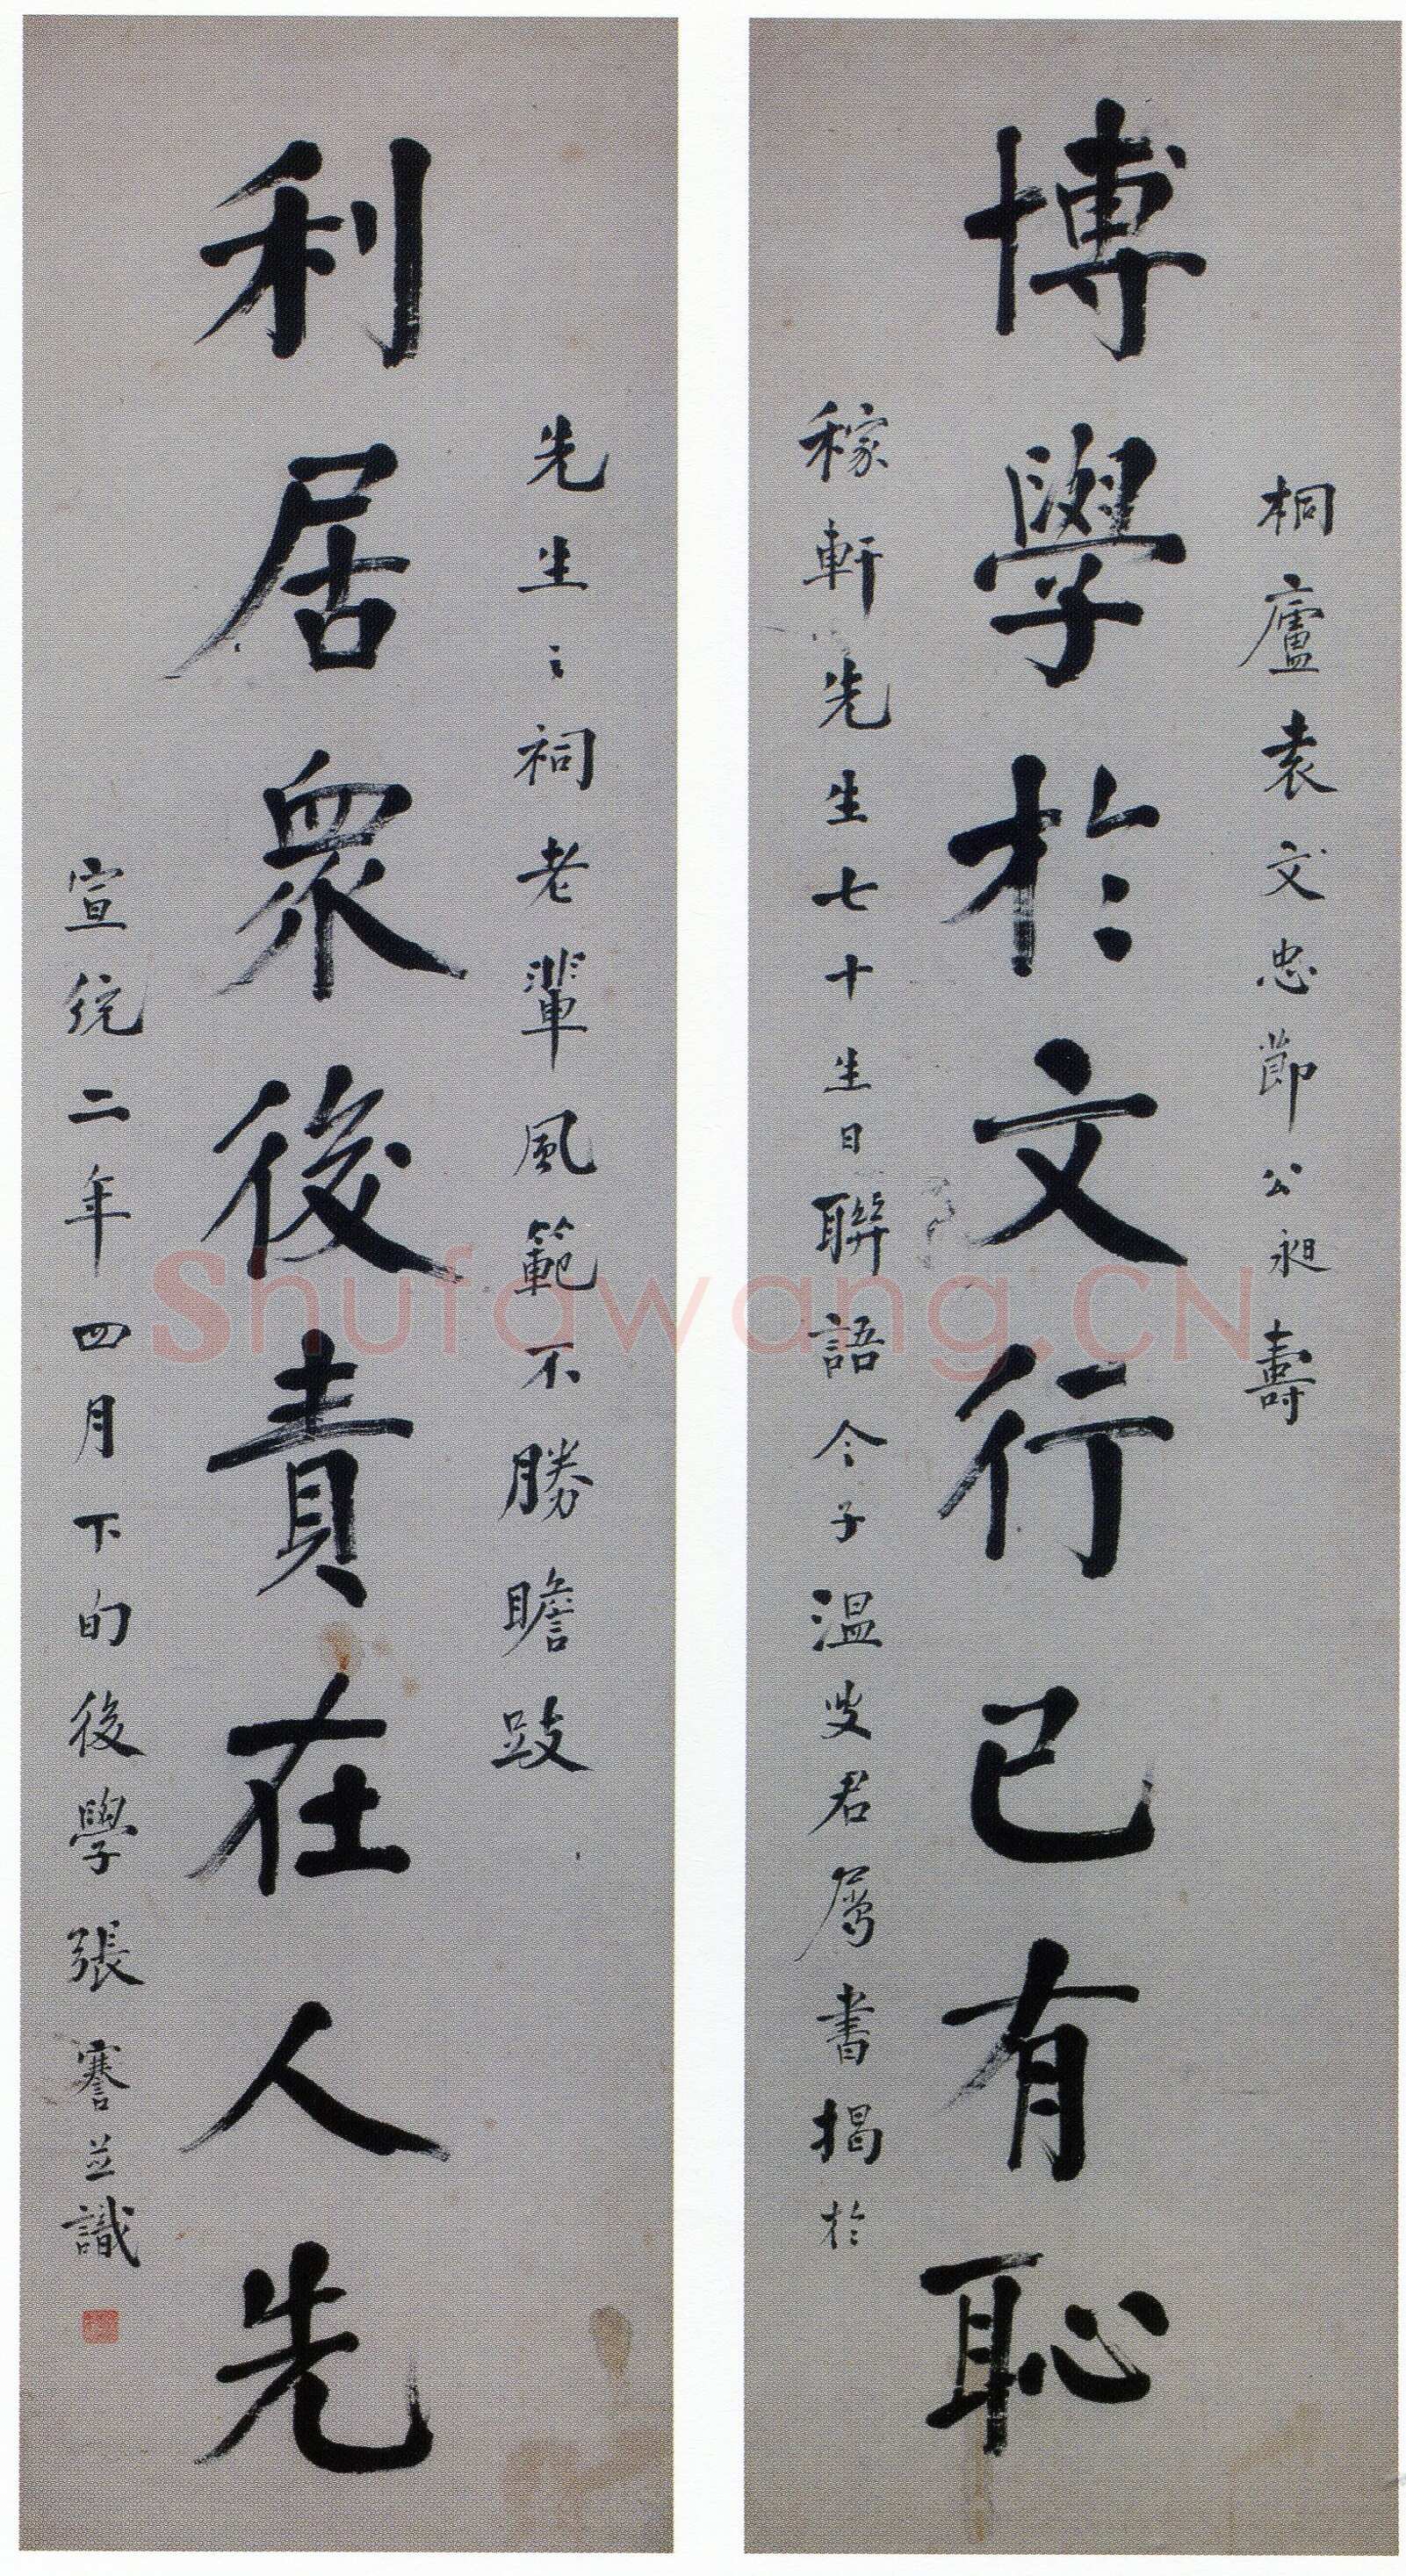 桐廬袁文忠節公昶壽
博學於文行己有恥
稼軒先生七十生日聯語令子溫叟君屬書揭於
先生之祠老輩風範不勝瞻跂
利居眾後責在人先
宣統二年四月下旬後學張謇並識
Shufawang.CN